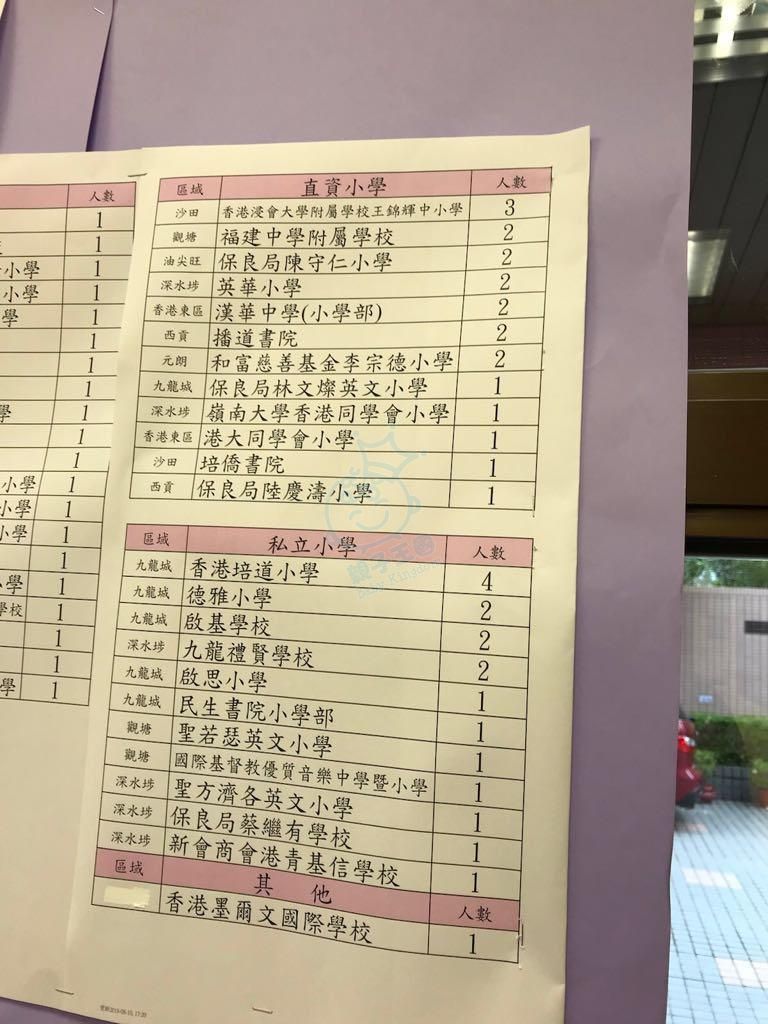 人數
1
1
1
小學 1
小學 1
學 1
1
1
1
學 1
1
小學 1
小學 1
小學 1
1
學 1
學校 1
1
1
學 1
區域 直資小學 人數
沙田 香港浸會大學附屬學校王錦輝中小學 3
觀塘 福建中學附屬學校 2
油尖旺 保良局陳守仁小學 2
深水埗 英華小學 2
香港東區 漢華中學(小學部) 2
西貢 播道書院 2
元朗 和富慈善基金李宗德小學 2
九龍城 保良局林文燦英文小學 1
深水埗 嶺南大學香港同學會小學 1
香港東區 港大同學會小學 1
沙田 培僑書院 1
西貢 保良局陸慶濤小學 1
區域 私立小學 人數
九龍城 香港培道小學 4
九龍城 德雅小學 2
九龍城 啟基學校 2
深水埗 九龍禮賢學校 2
九龍城 啟思小學 1
九龍城 民生書院小學部 1
觀塘 聖若瑟英文小學 1
觀塘 國際基督教優質音樂中學暨小學 1
深水埗 聖方濟各英文小學 1
深水埗 保良局蔡繼有學校 1
深水埗 新會商會港青基信學校 1
區域 其他 人數
香港墨爾文國際學校 1
親子王國
Baby Kingdom